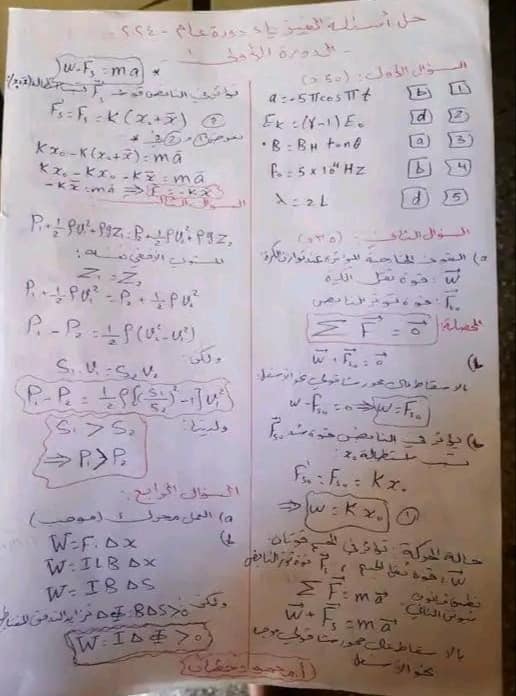 حل أسئلة الفيزياء دورة عام ٢٠٢٤
الدورة الأولى
السؤال الأول: (50)
1 b a = -5πcos πt
2 d Ek = (γ-1) E₀
3 a B = BH tanθ
4 b f₀ = 5 × 10¹⁴ Hz
5 d λ = 2L
السؤال الثاني:
a) القوى الخارجية المؤثرة عند توازن الكرة:
W: قوة ثقل الكرة
Fs₀: قوة توتر النابض
المحصلة: ΣF = 0
W + Fs₀ = 0
بالإسقاط على محور شاقولي نحو الأسفل
w - Fs₀ = 0 ⇒ w = Fs₀
b) يؤثر في النابض قوة شد F's₀
تسبب استطالة x₀
F's₀ = Fs₀ = Kx₀
⇒ w = Kx₀ ①
حالة الحركة: تؤثر في الجسم قوتان
W: قوة ثقل الجسم، Fs قوة توتر النابض
نطبق قانون نيوتن الثاني: ΣF = ma
W + Fs = ma
بالإسقاط على محور شاقولي موجه
نحو الأسفل
w - Fs = ma *
تؤثر في النابض قوة
F's = Fs = K(x₀ + x) ②
نعوض ① و ② في *
Kx₀ - K(x₀ + x) = ma
Kx₀ - Kx₀ - Kx = ma
-Kx = ma ⇒ F = -Kx
السؤال الثالث:
P₁ + ½ρv₁² + ρgZ₁ = P₂ + ½ρv₂² + ρgZ₂
Z₁ = Z₂
P₁ + ½ρv₁² = P₂ + ½ρv₂²
P₁ - P₂ = ½ρ(v₂² - v₁²)
ولكن:
S₁v₁ = S₂v₂
P₁ - P₂ = ½ρ[(S₁/S₂)² - 1]v₁²
ولدينا: S₁ > S₂
⇒ P₁ > P₂
السؤال الرابع:
a) العمل محرك (موجب)
b) W = F.Δx
W = ILBΔx
W = IBΔS
ولكن ΔΦ = BΔS > 0 تزايد التدفق المغناطيسي
W = IΔΦ > 0